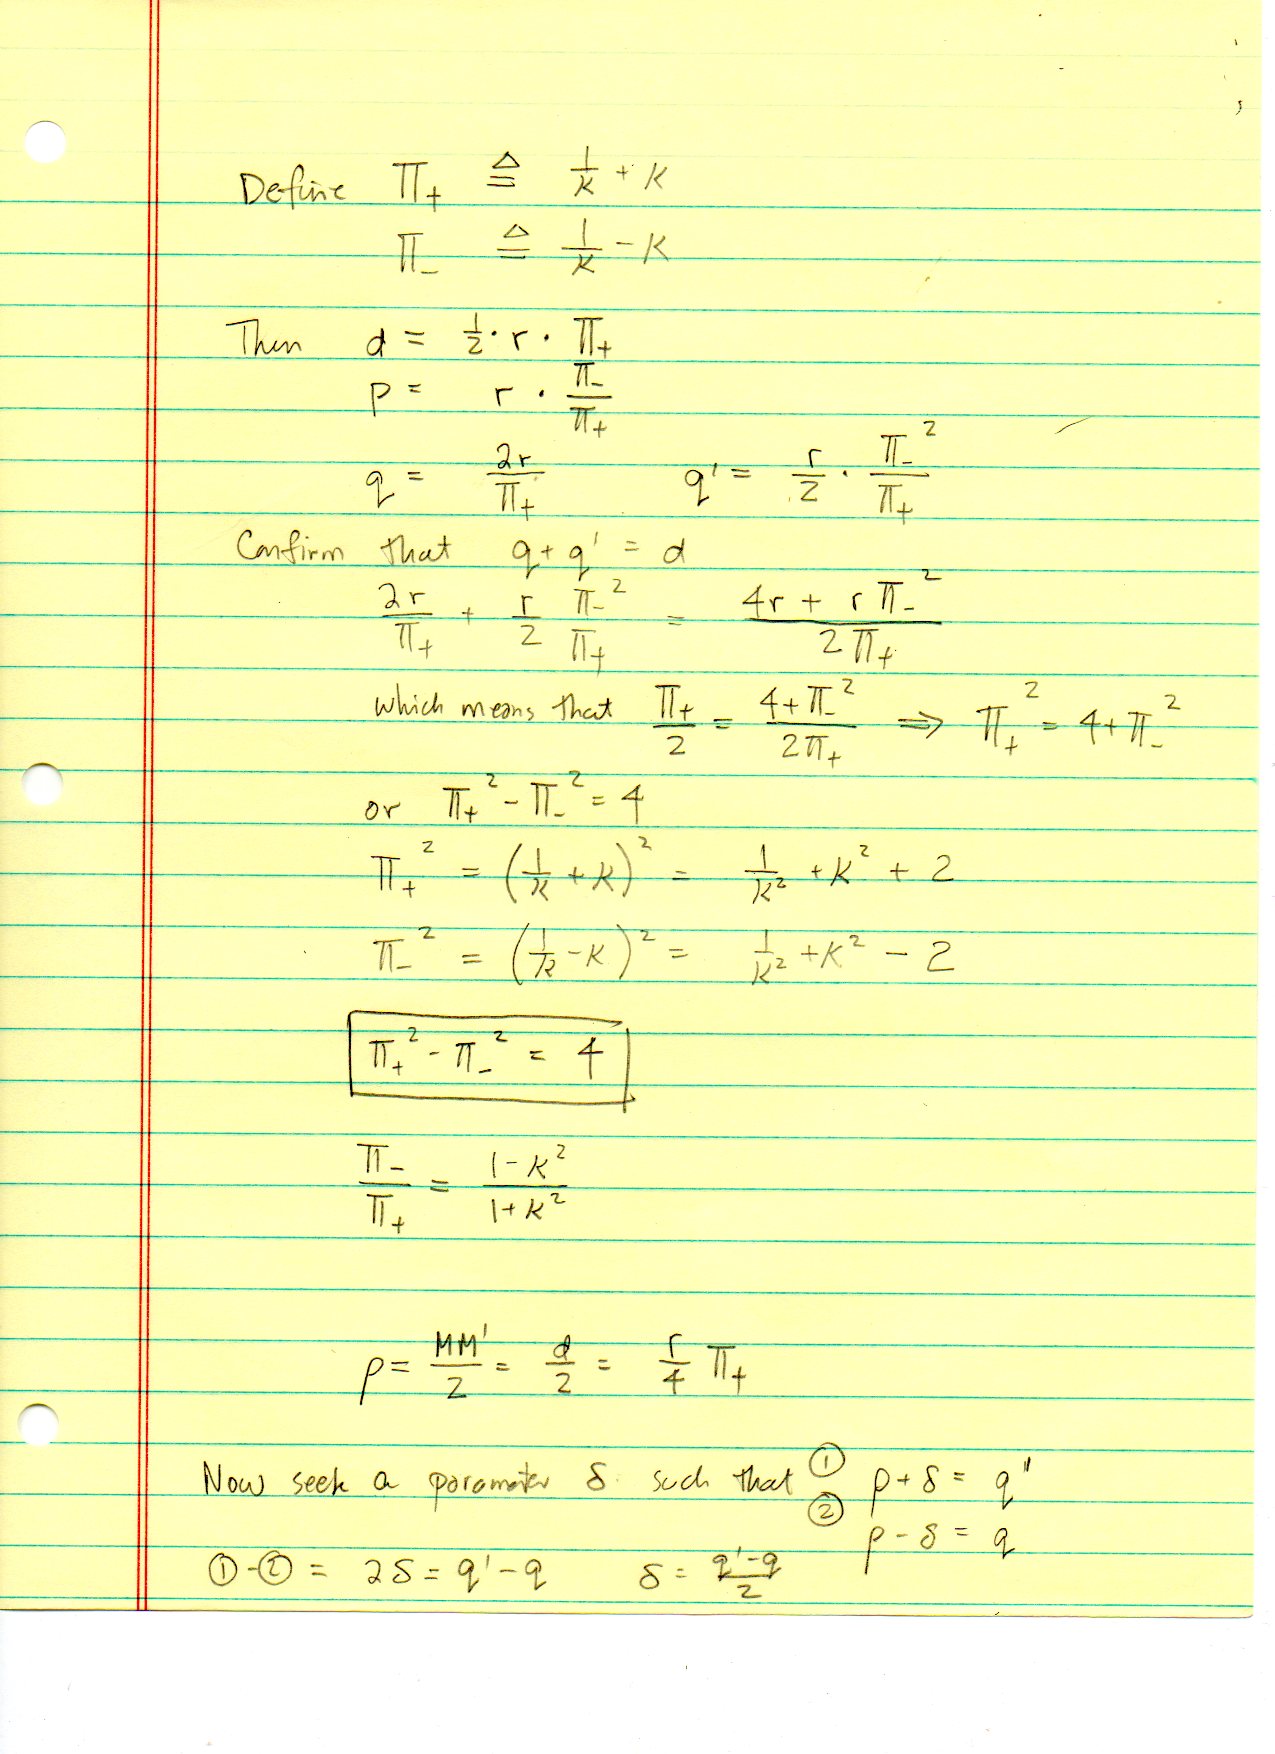 Define Π₊ ≜ 1/k + k
Π₋ ≜ 1/k - k
Then d = 1/2 · r · Π₊
p = r · Π₋/Π₊
q = 2r/Π₊ q' = r/2 · Π₋²/Π₊
Confirm that q + q' = d
2r/Π₊ + r/2 Π₋²/Π₊ = (4r + rΠ₋²)/(2Π₊)
which means that Π₊/2 = (4+Π₋²)/(2Π₊) ⟹ Π₊² = 4+Π₋²
or Π₊² - Π₋² = 4
Π₊² = (1/k + k)² = 1/k² + k² + 2
Π₋² = (1/k - k)² = 1/k² + k² - 2
Π₊² - Π₋² = 4
Π₋/Π₊ = (1-k²)/(1+k²)
ρ = MM'/2 = d/2 = r/4 Π₊
Now seek a parameter δ such that ① ρ + δ = q"
② ρ - δ = q
①-② = 2δ = q'-q δ = (q'-q)/2